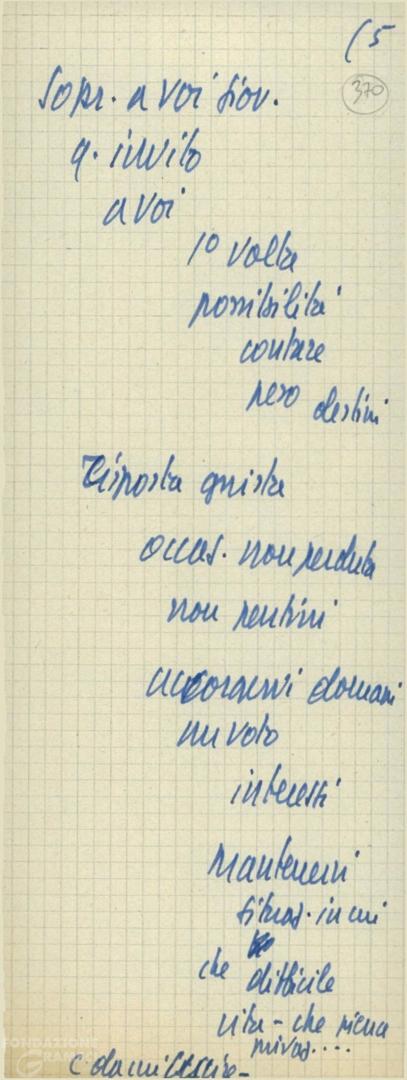 (5
370
Sopr. a voi giov.
q. invito
a voi
1° volta
possibilità
contare
peso destini
Risposta giusta
occas. non perduta
non pentirvi
accorgervi domani
un voto
interessi
mantenervi
situaz. in cui
che difficile
vita - che piena
privaz....
FONDAZIONE
GRAMSCI